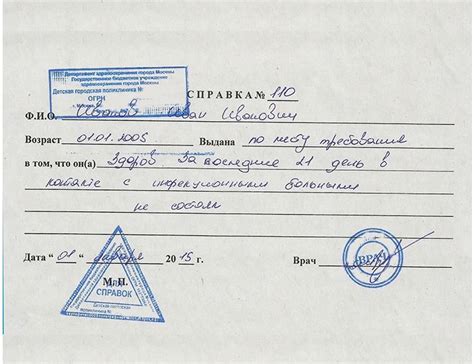 Департамент здравоохранения города Москвы
Государственное бюджетное учреждение
здравоохранения города Москвы
Детская городская поликлиника №
ОГРН
г. Москва,
СПРАВКА № 110
Ф.И.О. Иванов Иван Иванович
Возраст 01.01.2005 Выдана по месту требования
в том, что он(а) Здоров За последние 21 день в
контакте с инфекционными больными
не состоял
Дата "01" 2015 г. Врач ВРАЧ
М.П.
ДЛЯ
СПРАВОК
Детская городская
поликлиника №